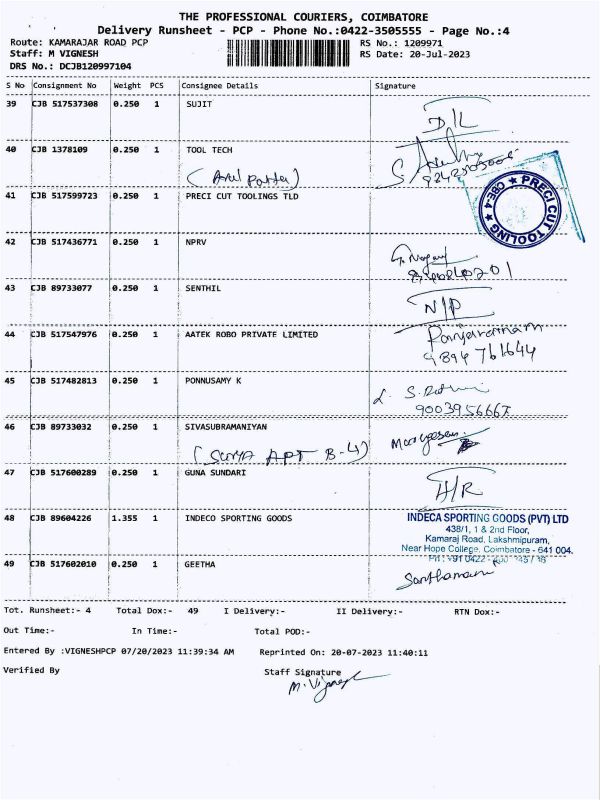 THE PROFESSIONAL COURIERS, COIMBATORE
Delivery Runsheet - PCP - Phone No.:0422-3505555 - Page No.:4
Route: KAMARAJAR ROAD PCP RS No.: 1209971
Staff: M VIGNESH RS Date: 20-Jul-2023
DRS No.: DCJB120997104
S No Consignment No Weight PCS Consignee Details Signature
39 CJB 517537308 0.250 1 SUJIT D/L
40 CJB 1378109 0.250 1 TOOL TECH
41 CJB 517599723 0.250 1 PRECI CUT TOOLINGS TLD
PRECI CUT TOOLING ★ CBE-4 ★
42 CJB 517436771 0.250 1 NPRV
43 CJB 89733077 0.250 1 SENTHIL N/P
44 CJB 517547976 0.250 1 AATEK ROBO PRIVATE LIMITED
9894 761644
45 CJB 517482813 0.250 1 PONNUSAMY K
9003956667
46 CJB 89733032 0.250 1 SIVASUBRAMANIYAN
(SURYA APT B-4)
47 CJB 517600289 0.250 1 GUNA SUNDARI H/R
48 CJB 89604226 1.355 1 INDECO SPORTING GOODS INDECA SPORTING GOODS (PVT) LTD
438/1, 1 & 2nd Floor,
Kamaraj Road, Lakshmipuram,
Near Hope College, Coimbatore - 641 004.
49 CJB 517602010 0.250 1 GEETHA
Santhamani
Tot. Runsheet:- 4 Total Dox:- 49 I Delivery:- II Delivery:- RTN Dox:-
Out Time:- In Time:- Total POD:-
Entered By :VIGNESHPCP 07/20/2023 11:39:34 AM Reprinted On: 20-07-2023 11:40:11
Verified By Staff Signature